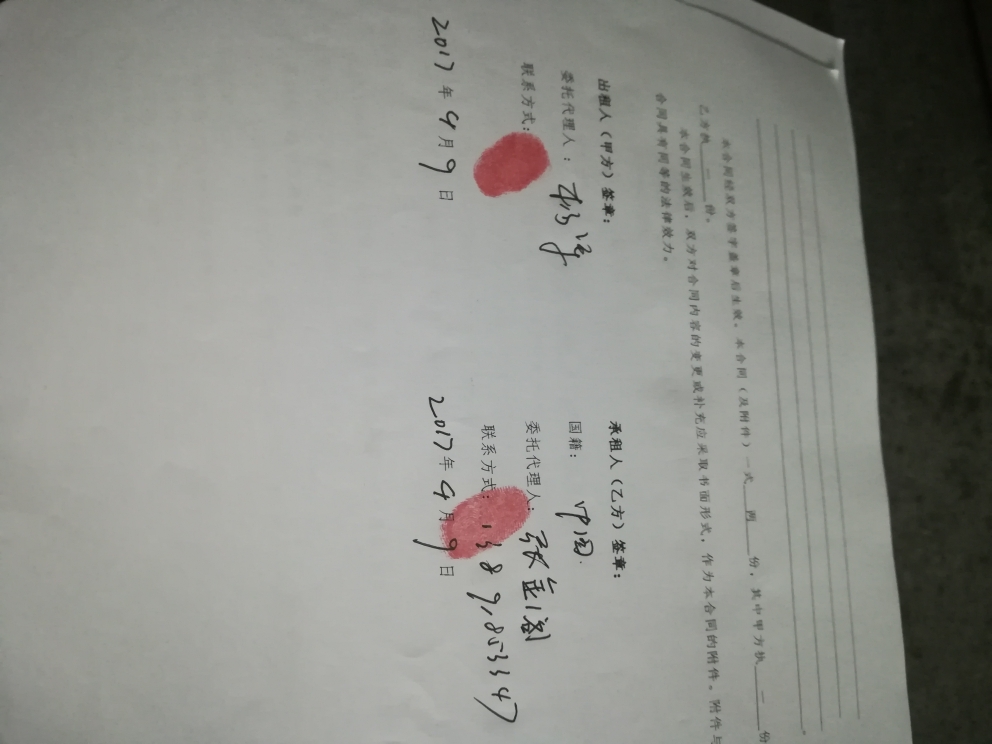 本合同经双方签字盖章后生效。本合同（及附件）一式 两 份，其中甲方执 二 份
乙方执 二 份。
本合同生效后，双方对合同内容的变更或补充应采取书面形式，作为本合同的附件。附件与
合同具有同等的法律效力。
出租人（甲方）签章：
委托代理人：
联系方式：
2017年9月9日
承租人（乙方）签章：
国籍： 中国
委托代理人：张
联系方式：13891853347
2017年9月9日